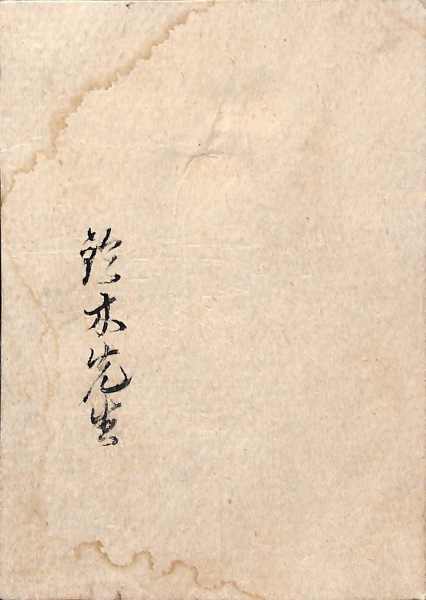 鈴木先生